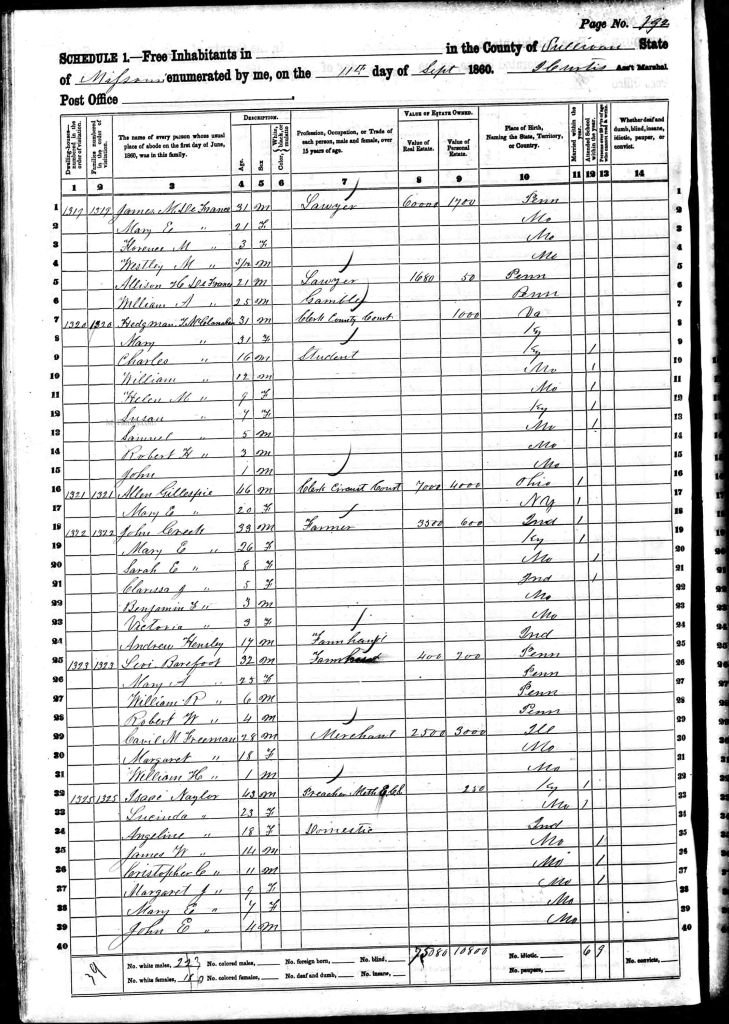 Page No. 192
SCHEDULE 1.—Free Inhabitants in in the County of Sullivan State
of Missouri enumerated by me, on the 11th day of Sept 1860. J Curtis Ass't Marshal.
Post Office
Dwelling-houses—numbered in the order of visitation.
Families numbered in the order of visitation.
The name of every person whose usual place of abode on the first day of June, 1860, was in this family.
DESCRIPTION.
Age.
Sex
Color, White, black, or mulatto
Profession, Occupation, or Trade of each person, male and female, over 15 years of age.
VALUE OF ESTATE OWNED.
Value of Real Estate.
Value of Personal Estate.
Place of Birth, Naming the State, Territory, or Country.
Married within the year.
Attended School within the year.
Whether deaf and dumb, blind, insane, idiotic, pauper, or convict.
1 2 3 4 5 6 7 8 9 10 11 12 13 14
1 1319 1319 James M De France 31 M Lawyer 60000 1700 Penn
2 Mary E " 21 F Mo
3 Florence M " 3 F Mo
4 Westley M " 3/12 M Mo
5 Allison H De France 21 M Lawyer 1680 50 Penn
6 William A " 25 M Gambler Penn
7 1320 1320 Hedgman 31 M Clerk County Court 1000 Va
8 Mary " 31 F Ky
9 Charles " 16 M Student Ky 1
10 William " 12 M Mo 1
11 Helen M " 9 F Mo 1
12 Susan " 7 F Ky 1
13 Samuel " 5 M Mo 1
14 Robert H " 3 M Mo
15 John 1 M Mo
16 1321 1321 Allen Gillespie 46 M Clerk Circuit Court 7000 4000 Ohio 1
17 Mary E " 20 F NY 1
18 1322 1322 John Creek 33 M Farmer 3500 600 Ind 1
19 Mary E " 26 F Ky 1
20 Sarah E " 8 F Mo 1
21 Clarissa J " 5 F Ind 1
22 Benjamin F " 3 M Mo
23 Victoria " 3 F Mo
24 Andrew Hensley 17 M Farmhand Ind
25 1323 1323 Levi Barefoot 32 M Farm 400 200 Penn
26 Mary A " 23 F Penn
27 William R " 6 M Penn
28 Robert W " 4 M Penn
29 Cavil M Freeman 28 M Merchant 2500 3000 Ill
30 Margaret " 18 F Mo
31 William H " 1 M Mo
32 1325 1325 Isaac Naylor 43 M Preacher Meth E Ch 250 Ky 1
33 Lucinda " 23 F Mo 1
34 Angeline " 18 F Domestic Ind
35 James W " 14 M Mo 1
36 Cristopher C " 11 M Mo 1
37 Margaret J " 9 F Mo 1
38 Mary E " 7 F Mo
39 John E " 4 M Mo
40
39 No. white males, 22 No. colored males, No. foreign born, No. blind, 75080 10800 No. idiotic, 6 9 No. convicts,
No. white females, No. colored females, No. deaf and dumb, No. insane, No. paupers,